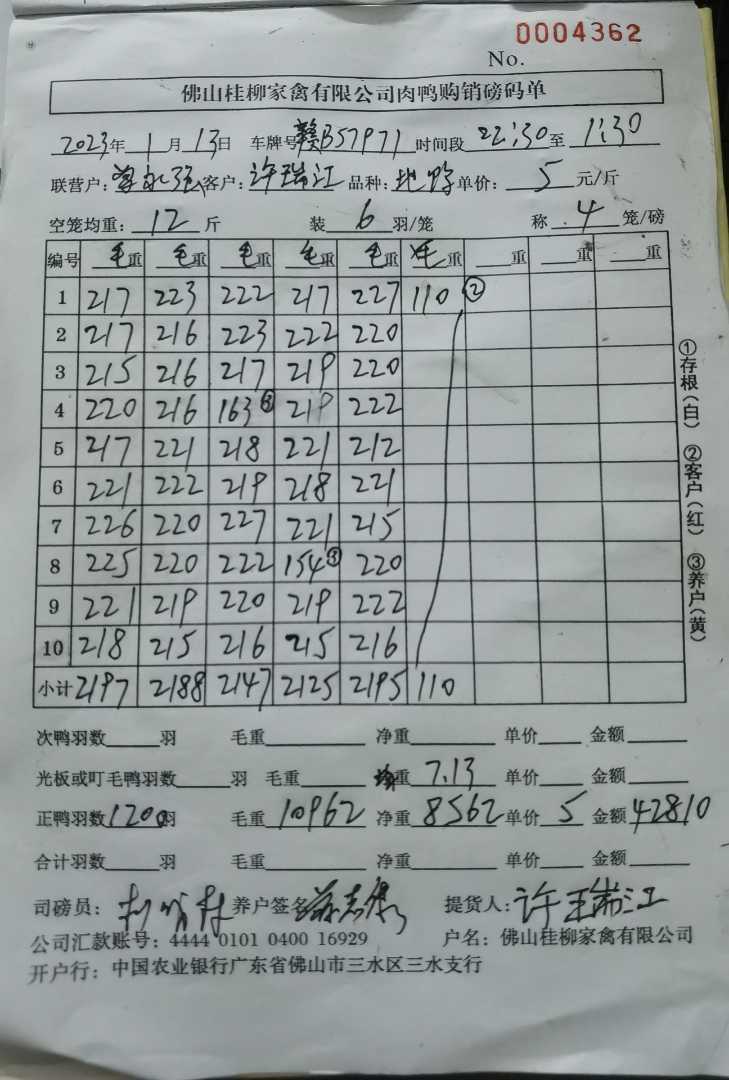 0004362
No.
佛山桂柳家禽有限公司肉鸭购销磅码单
2023年 1 月 13日 车牌号 赣B57971 时间段 22:30 至 1:30
联营户: 客户: 许瑞江 品种: 地鸭 单价: 5 元/斤
空笼均重: 12 斤 装 6 羽/笼 称 4 笼/磅
编号 毛重 毛重 毛重 毛重 毛重 毛重 重 重 重
1 217 223 222 217 227 110 ②
2 217 216 223 222 220
3 215 216 217 219 220
4 220 216 163③ 219 222
5 217 221 218 221 212
6 221 222 219 218 221
7 226 220 227 221 215
8 225 220 222 154③ 220
9 221 219 220 219 222
10 218 215 216 215 216
小计 2197 2188 2147 2125 2195 110
①存根(白) ②客户(红) ③养户(黄)
次鸭羽数 羽 毛重 净重 单价 金额
光板或叮毛鸭羽数 羽 毛重 均重 7.13 单价 金额
正鸭羽数 1200 羽 毛重 10962 净重 8562 单价 5 金额 42810
合计羽数 羽 毛重 净重 单价 金额
司磅员: 养户签名 提货人: 许瑞江
公司汇款账号: 4444 0101 0400 16929 户名: 佛山桂柳家禽有限公司
开户行: 中国农业银行广东省佛山市三水区三水支行